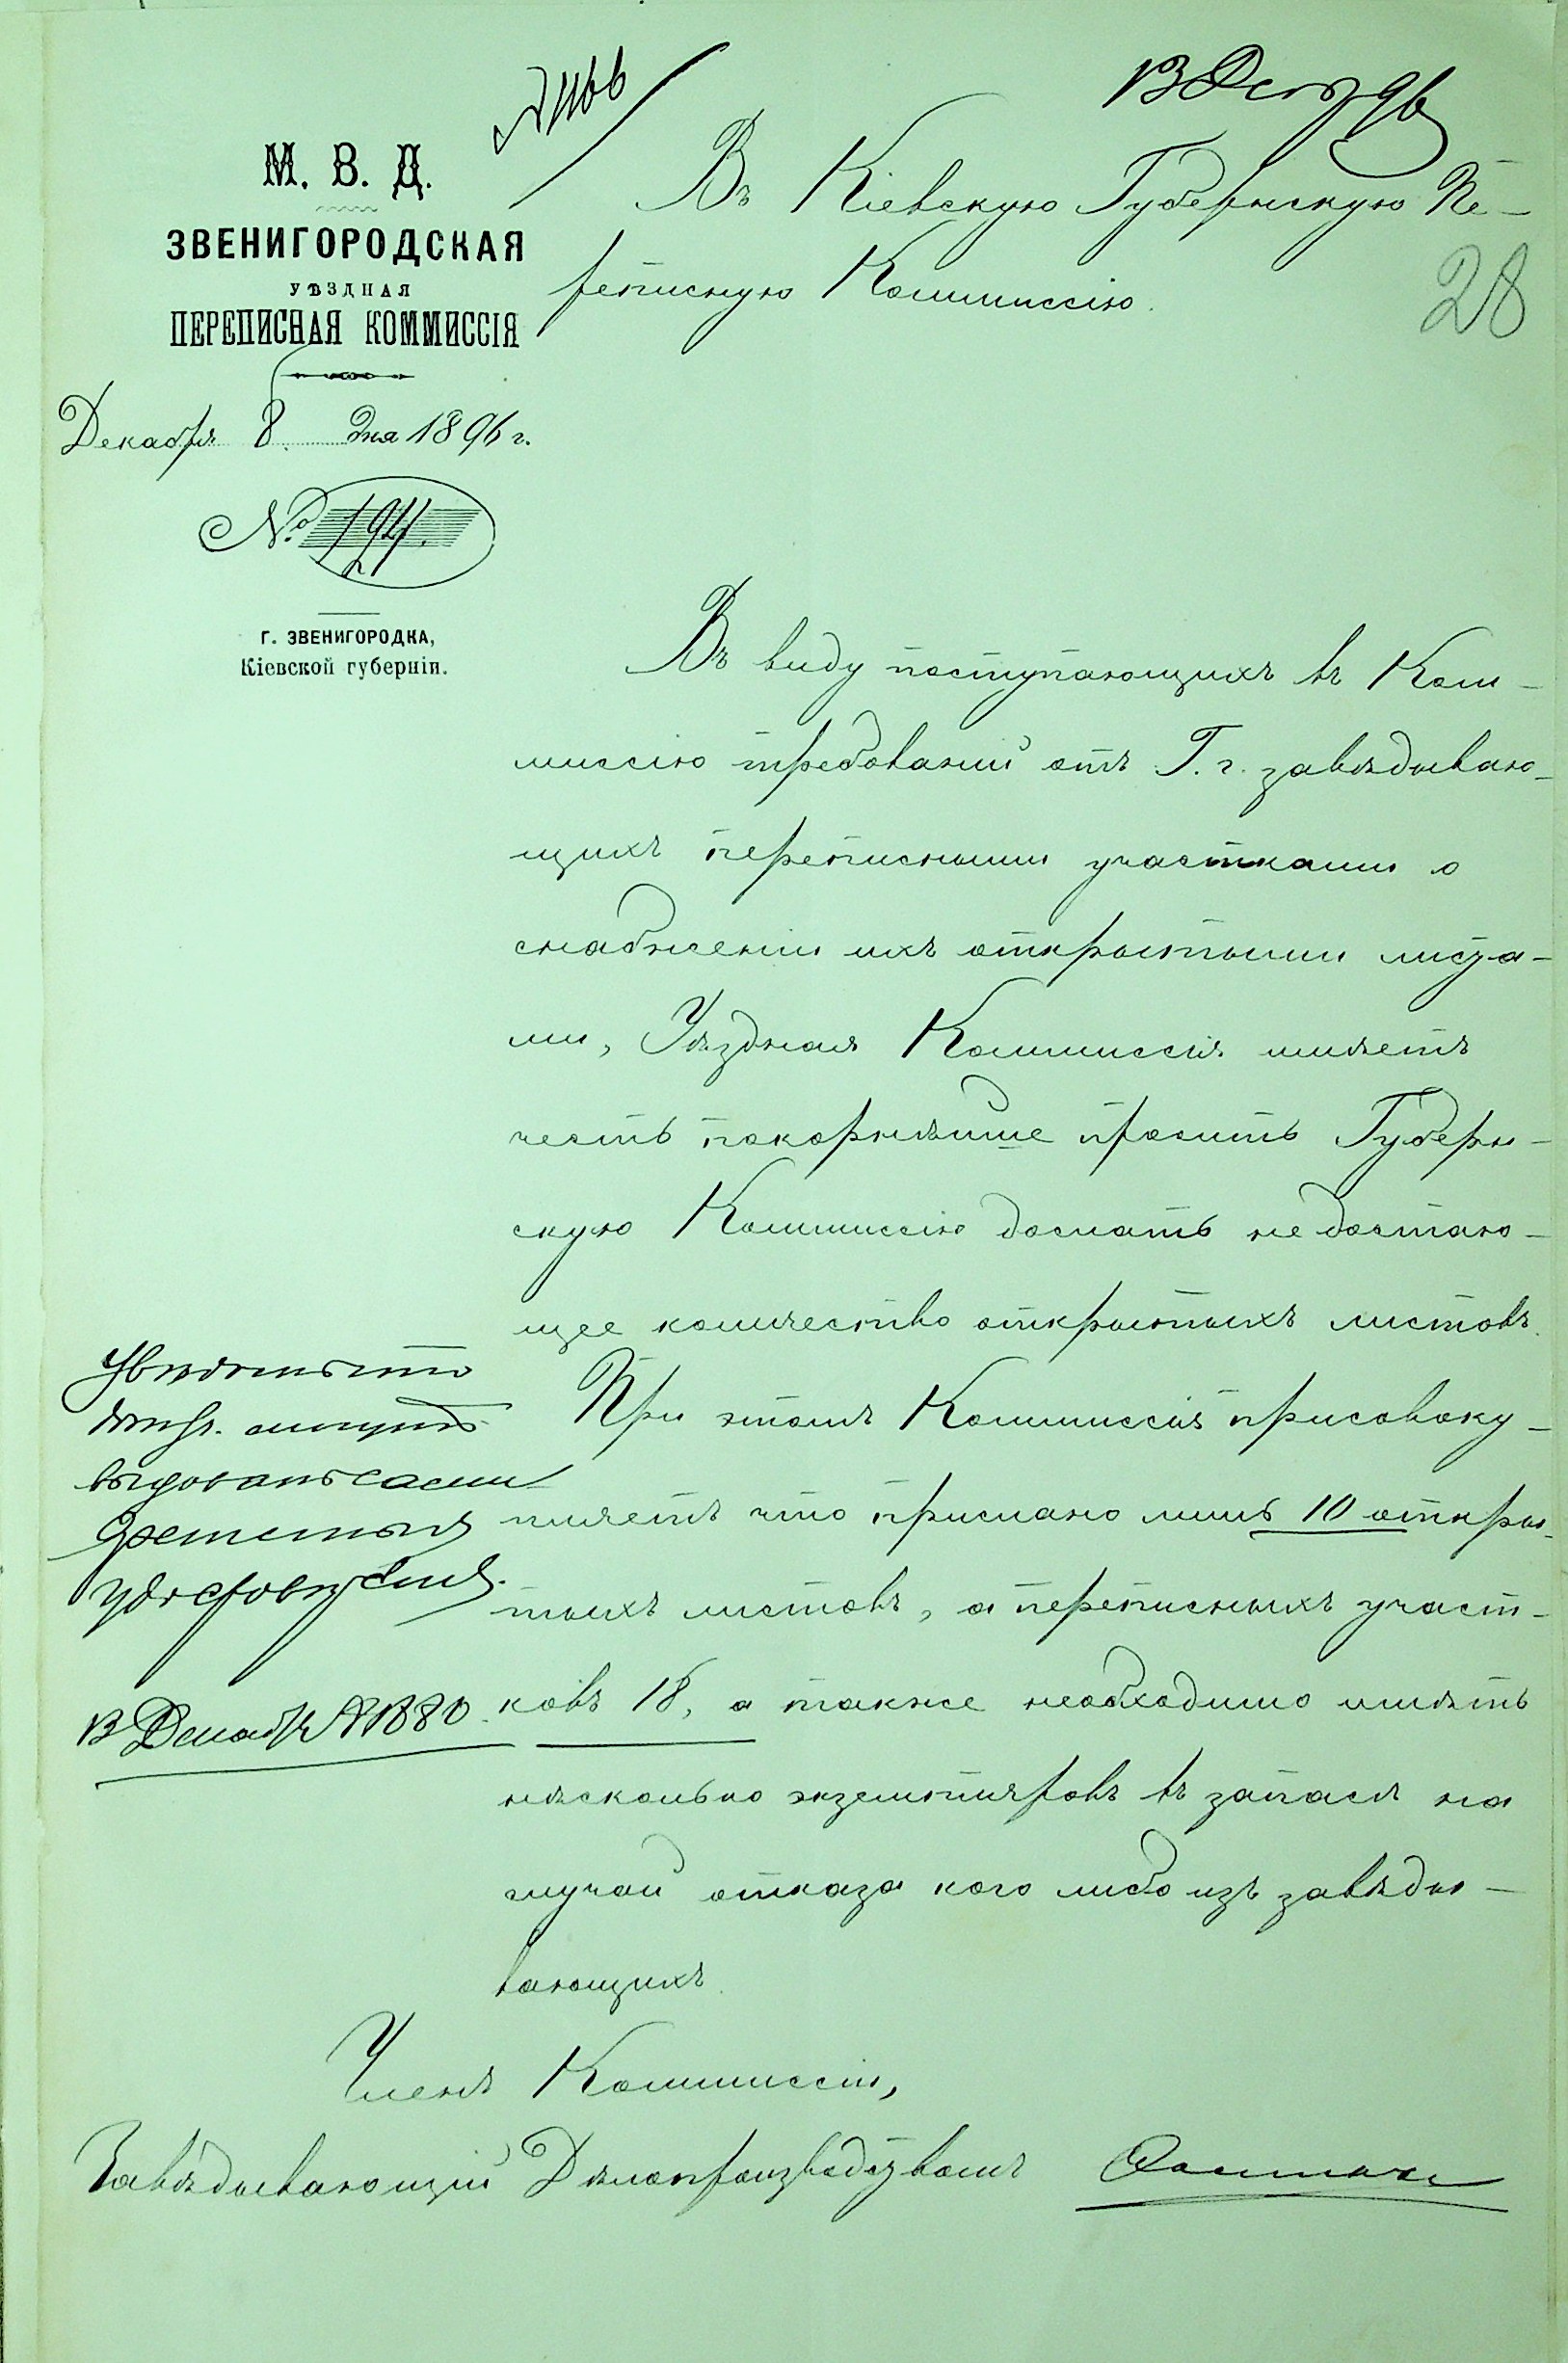 № 1166
13 Дек 96
М. В. Д.
ЗВЕНИГОРОДСКАЯ
УѢЗДНАЯ
ПЕРЕПИСНАЯ КОММИССІЯ
Декабря 8 дня 1896 г.
№ 194.
Г. ЗВЕНИГОРОДКА,
Кіевской губерніи.
Въ Кіевскую Губернскую Пе-
реписную Коммиссію.
28
Въ виду поступающихъ въ Ком-
миссію требованій отъ Г. г. завѣдываю-
щихъ переписными участками о
снабженіи ихъ открытыми листа-
ми, Уѣздная Коммиссія имѣетъ
честь покорнѣйше просить Губерн-
скую Коммиссію дослать недостаю-
щее количество открытыхъ листовъ.
При этомъ Коммиссія присовоку-
пляетъ что прислано лишь 10 откры-
тыхъ листовъ, а переписныхъ участ-
ковъ 18, а также необходимо имѣть
нѣсколько экземпляровъ въ запасѣ на
случай отказа кого либо изъ завѣды-
вающихъ.
Увѣдомить что
могутъ
выдовать сами
удостовѣренія.
13 Декабря № 1880.
Членъ Коммиссіи,
Завѣдывающій Дѣлопроизводствомъ